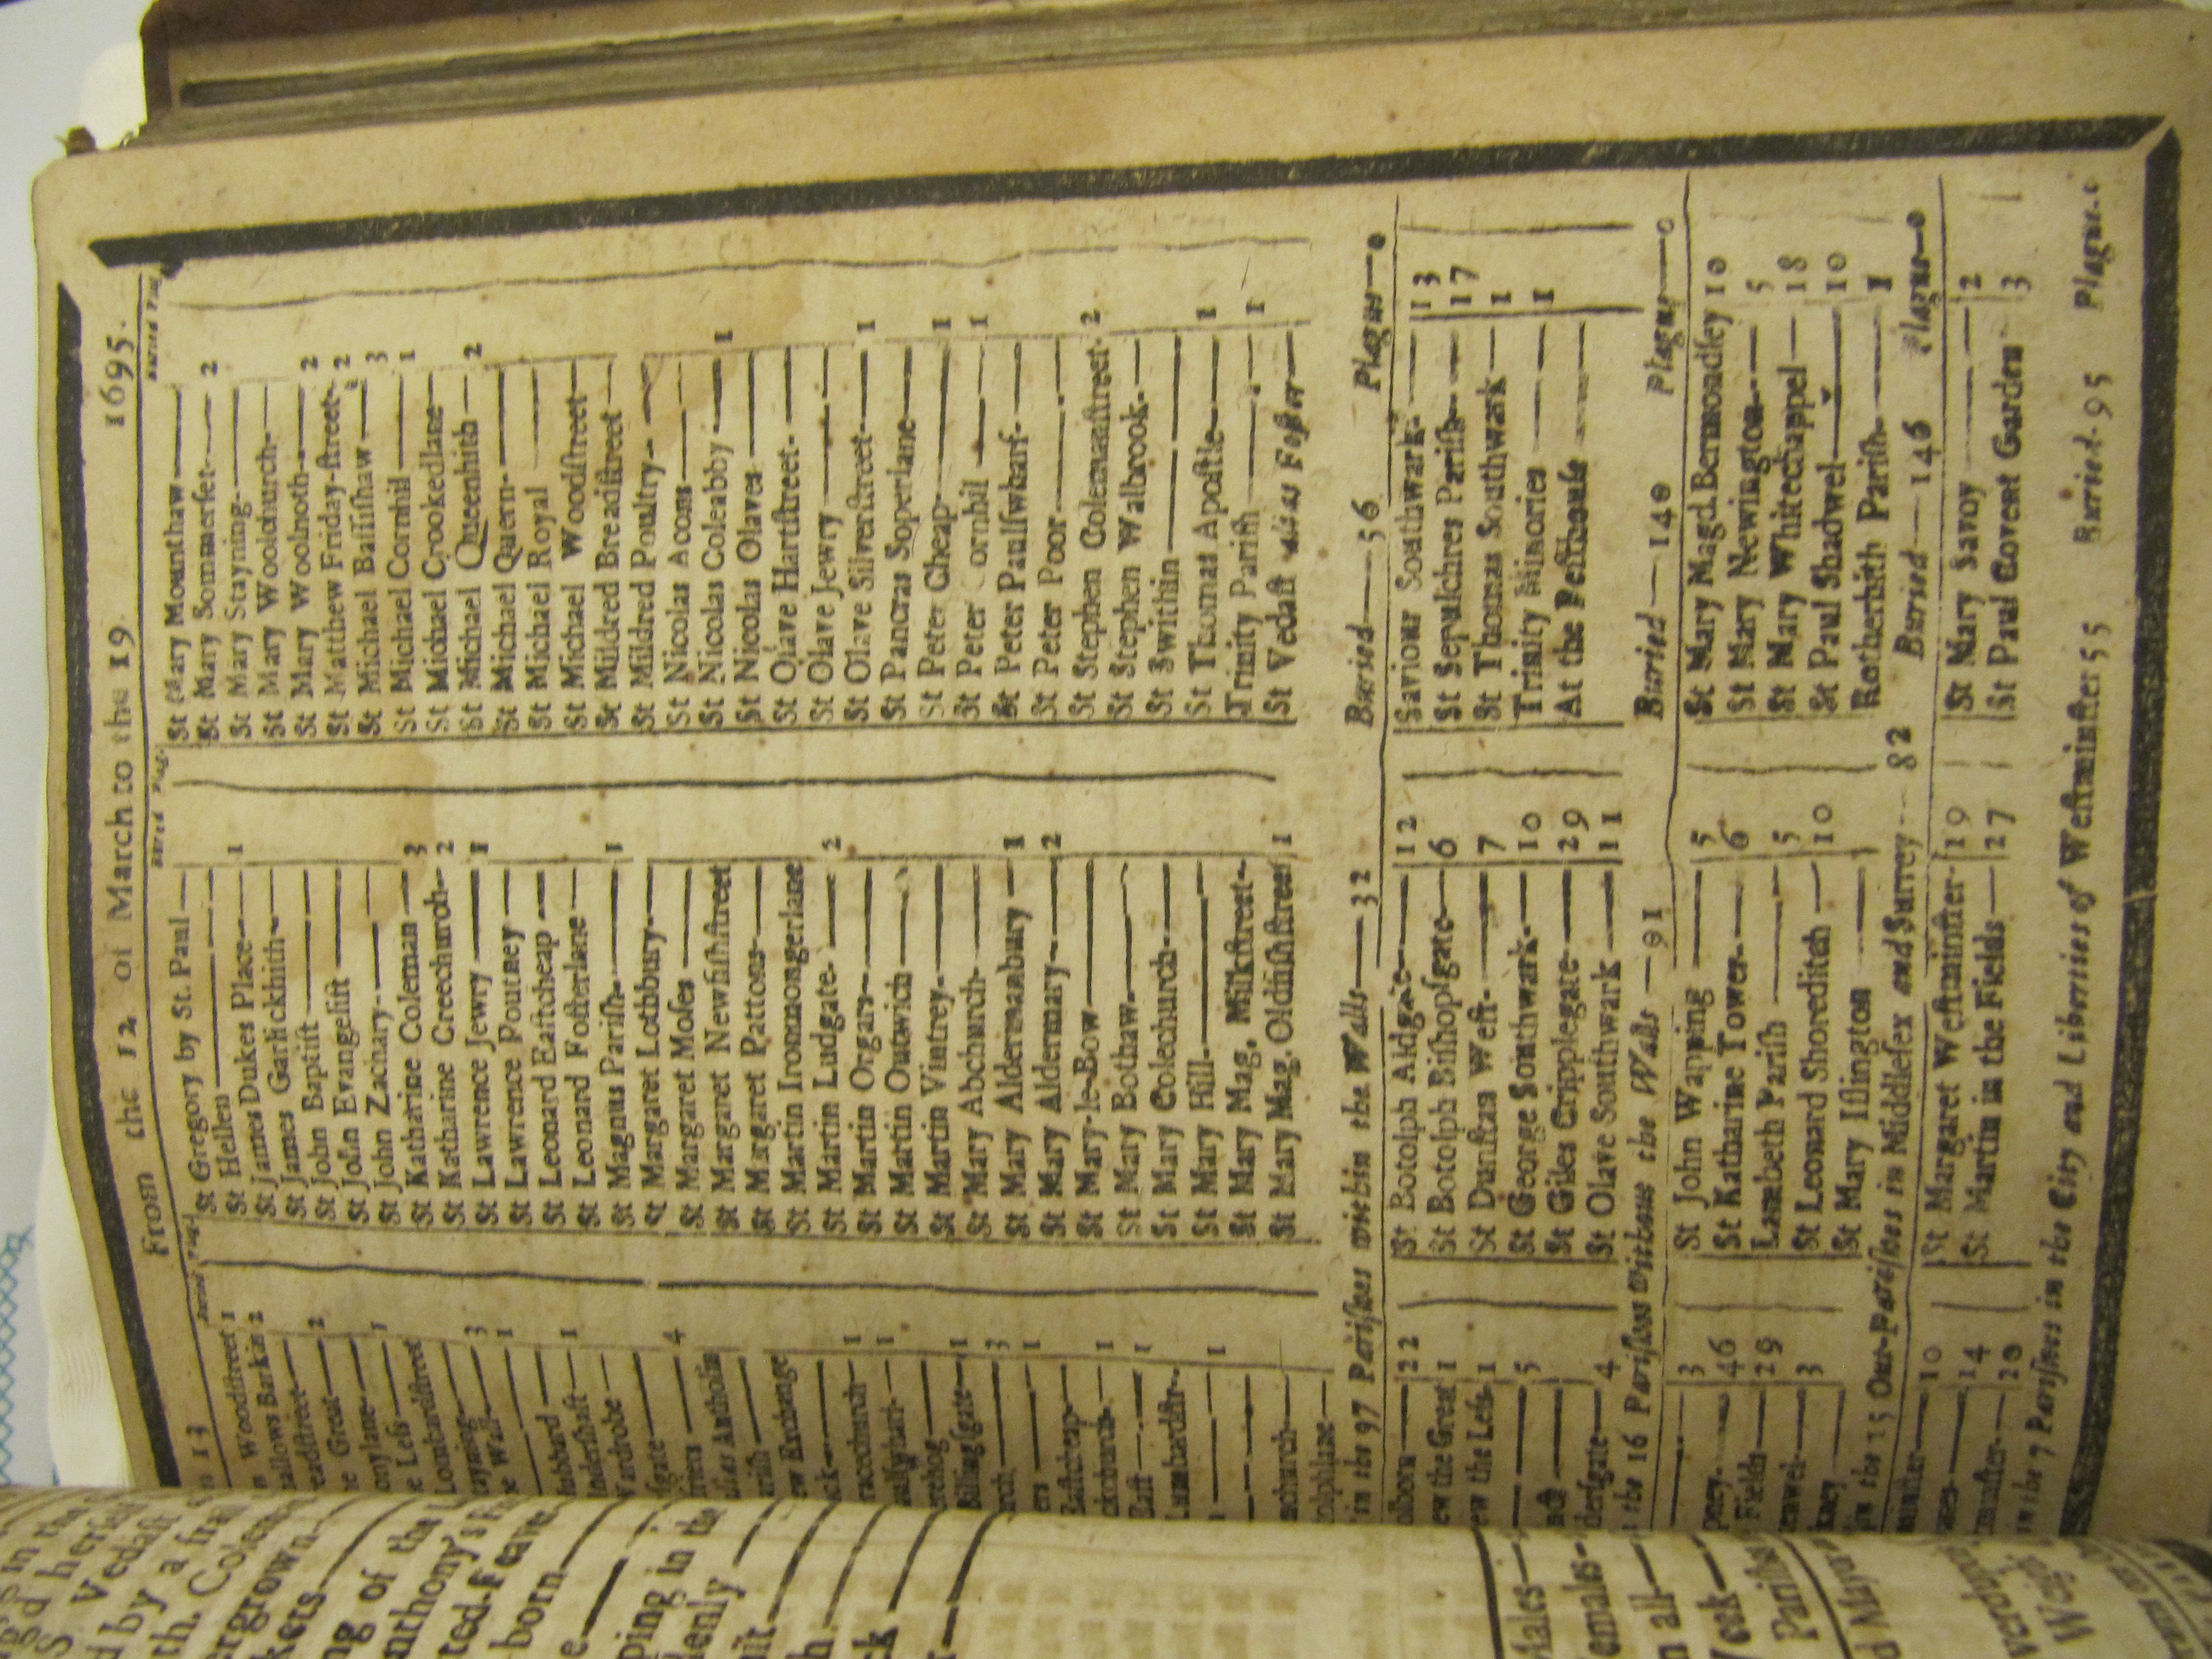 From the 12 of March to the 19. 1695.
Woodstreet 1
Barkin 2
readstreet—
e Great— 2
onylane— 1
e Less—
Lombardstreet
tayning— 3
e Wall— 1
hubbard—
ndershaft— 1
Wardrobe—
sgate— 4
friers
alias Antholin
arish—
ew Exchange
ck—
racechurch— 1
1
erehog—
Billingsgate— 1
rch— 3
ers— 1
Eastcheap—
ckchurch— 1
East— 1
Lumbardstr—
1
St Gregory by St. Paul—
St Hellen—
St James Dukes Place— 1
St James Garlickhith—
St John Baptist—
St John Evangelist—
St John Zachary—
St Katharine Coleman— 3
St Katharine Creechurch— 2
St Lawrence Jewry— 1
St Lawrence Poutney—
St Leonard Eastcheap—
St Leonard Fosterlane—
St Magnus Parish— 1
St Margaret Lothbury—
St Margaret Moses—
St Margaret Newfishstreet
St Margaret Pattons—
St Martin Ironmongerlane
St Martin Ludgate— 2
St Martin Orgars—
St Martin Outwich—
St Martin Vintrey—
St Mary Abchurch—
St Mary Aldermanbury— 1
St Mary Aldermary— 2
St Mary-le-Bow—
St Mary Bothaw—
St Mary Colechurch—
St Mary Hill—
St Mary Mag. Milkstreet—
St Mary Mag. Oldfishstreet 1
St Mary Mounthaw—
St Mary Sommerset— 2
St Mary Stayning—
St Mary Woolchurch—
St Mary Woolnoth— 2
St Matthew Friday-street— 2
St Michael Bassishaw— 3
St Michael Cornhil— 1
St Michael Crookedlane—
St Michael Queenhith— 2
St Michael Quern—
St Michael Royal—
St Michael Woodstreet—
St Mildred Breadstreet—
St Mildred Poultry—
St Nicolas Acons—
St Nicolas Coleabby— 1
St Nicolas Olaves—
St Olave Hartstreet—
St Olave Jewry—
St Olave Silverstreet— 1
St Pancras Soperlane—
St Peter Cheap— 1
St Peter Cornhil— 1
St Peter Paulswharf—
St Peter Poor—
St Stephen Colemanstreet— 2
St Stephen Walbrook—
St Swithin—
St Thomas Apostle— 1
Trinity Parish—
St Vedast alias Foster— 1
in the 97 Parishes within the Walls—32 Buried—56 Plague—0
olborn— 22
ew the Great 1
ew the Less 1
— 5
dersgate— 4
St Botolph Aldgate— 12
St Botolph Bishopsgate— 6
St Dunstan West— 7
St George Southwark— 10
St Giles Cripplegate— 29
St Olave Southwark— 11
Saviour Southwark— 13
St Sepulchres Parish— 17
St Thomas Southwark— 1
Trinity Minories— 1
At the Pesthouse—
the 16 Parishes without the Walls—91 Buried—140 Plague—0
— 3
pney— 46
Fields— 29
3
kney
St John Wapping— 5
St Katharine Tower— 6
Lambeth Parish— 5
St Leonard Shoreditch— 10
St Mary Islington—
St Mary Magd. Bermondsey 10
St Mary Newington— 5
St Mary Whitechappel— 18
St Paul Shadwel— 10
Rotherhith Parish— 1
in the 15 Out-Parishes in Middlesex and Surrey—82 Buried—146 Plague—0
10
14
20
St Margaret Westminster— 19
St Martin in the Fields— 27
St Mary Savoy— 2
St Paul Covent Garden 3
in the 7 Parishes in the City and Liberties of Westminster 55 Buried—95 Plague—0
Vedast
ergrown—
born—
ping in the
Males—
Females—
n all—
Week—